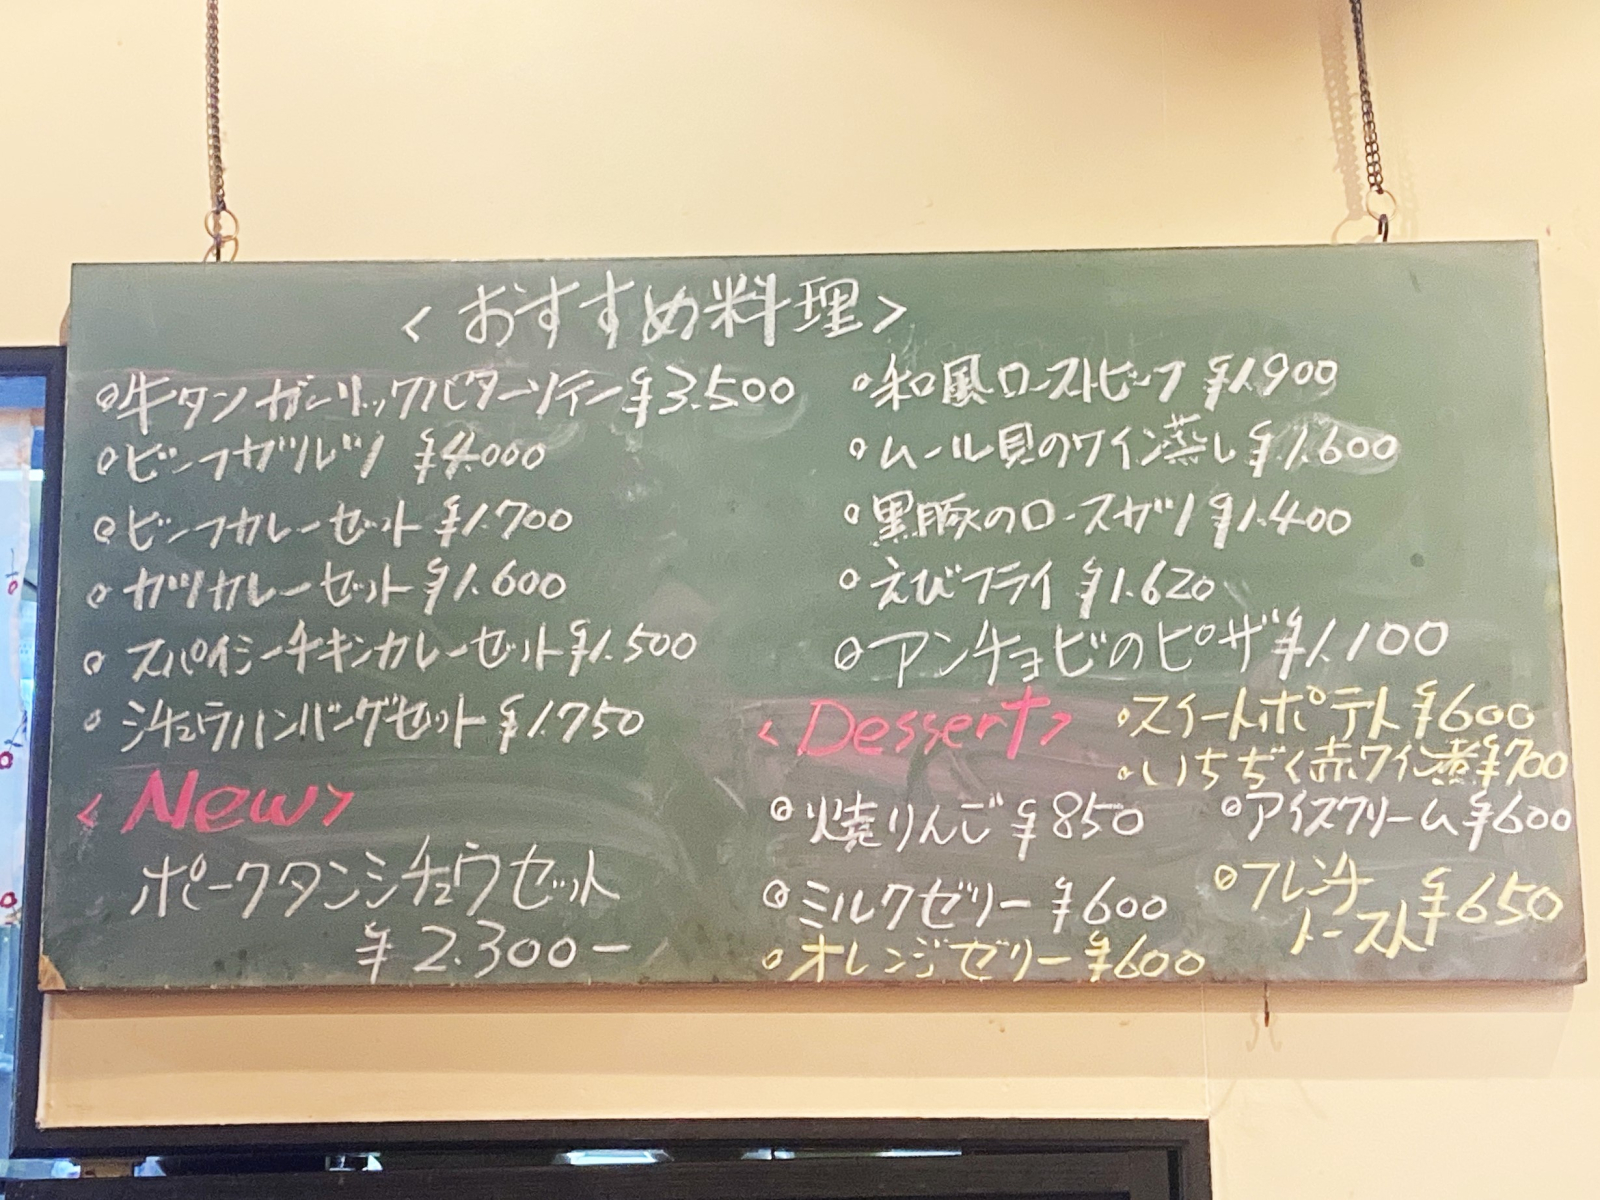 <おすすめ料理>
◎牛タンガーリックバターソテー¥3.500
◎ビーフカツレツ ¥4.000
◎ビーフカレーセット ¥1.700
◎カツカレーセット ¥1.600
◎スパイシーチキンカレーセット ¥1.500
◎シチュウハンバーグセット ¥1.750
<New>
ポークタンシチュウセット
¥2.300ー
◎和風ローストビーフ ¥1.900
◎ムール貝のワイン蒸し ¥1.600
◎黒豚のロースカツ ¥1.400
◎えびフライ ¥1.620
◎アンチョビのピザ ¥1.100
<Dessert>
◎スイートポテト ¥600
◎いちぢく赤ワイン煮¥700
◎焼りんご ¥850
◎アイスクリーム ¥600
◎ミルクゼリー ¥600
◎フレンチ
トースト ¥650
◎オレンジゼリー ¥600